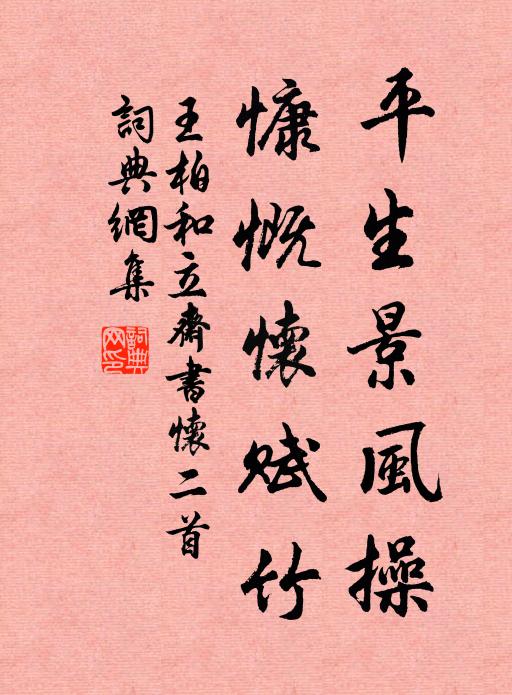 平生景風操
慷慨懷賦竹
王柏和立齋書懷二首
詞典網集
詞典网印